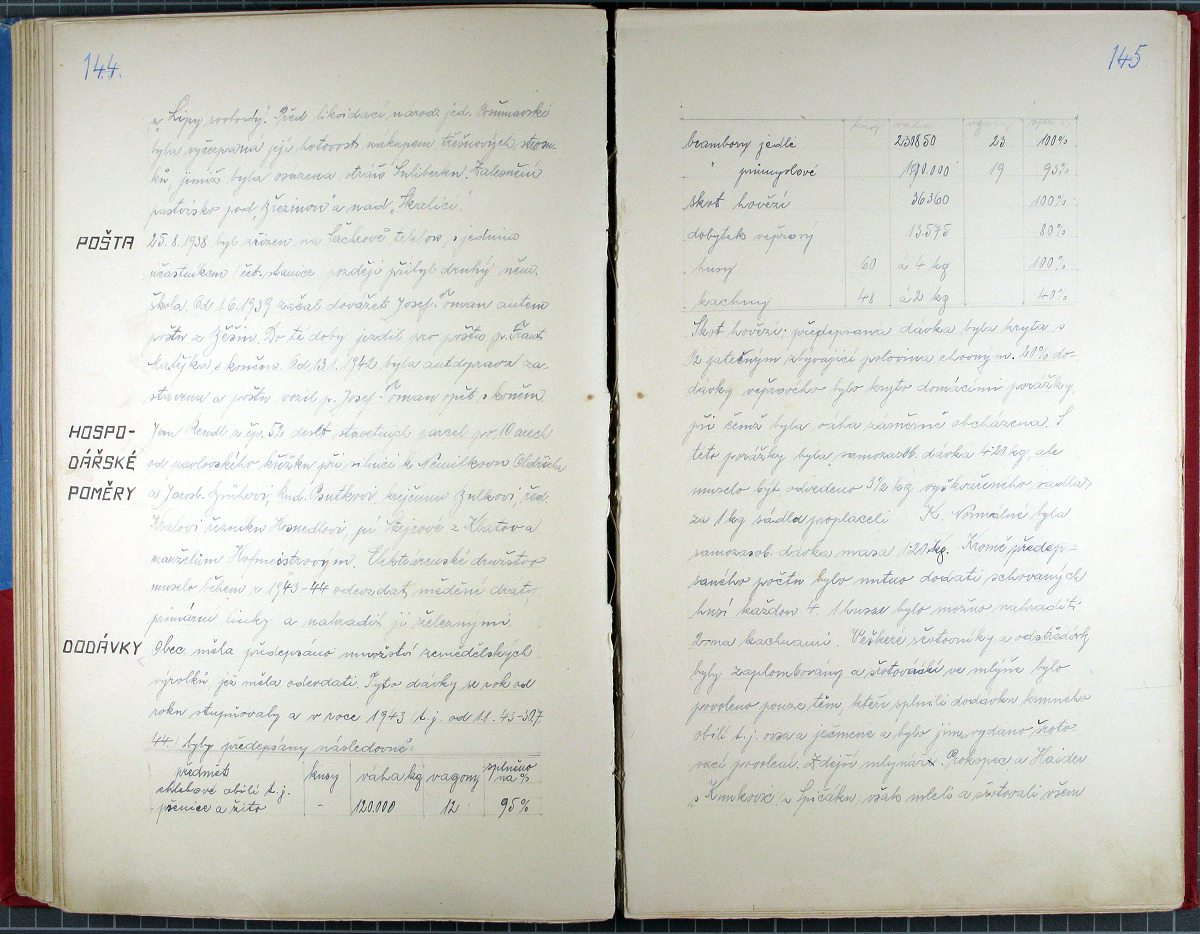 144.
u „Lípy svobody“. Před likvidací národ. jed. Pošumavské
byla vyčerpána její hotovost nákupem třešňových strom-
ků, jimiž byla osazena stráň Zalesnění
pastvisko pod „Březinou“ a nad „Skalicí“.
POŠTA
25.8.1938 byl zřízen na Čachrově telefon s jedním
účastníkem (čet. stanice) později přibyl druhý něm.
škola. Od 1.6.1939 začal dovážet Josef Toman autem
poštu z Běšin. Do té doby jezdil pro poštu p. Frant.
Matějka s koněm. Od 13.1.1942 byla autodoprava za-
stavena a poštu vozil p. Josef Toman opět s koněm.
HOSPO-
DÁŘSKÉ
POMĚRY
Jan Rendl z čp. 52 deset stavebních parcel po 10 arech
od pavlovského křížku při silnici k Nemilkovu Oldřichu
a Jarosl. Rud. krejčímu řed.
řezníku pí z a
manželům Hofmeistrovým. Elektrárenské družstvo
muselo během r. 1943-44 odevzdat měděné dráty
primární linky a nahradit je železnými.
DODÁVKY
Obec měla předepsáno množství zemědělských
výrobků jež měla odevzdati. Tyto dávky se rok od
roku stupňovaly a v roce 1943 (t.j. od 1.8.43-30.7.
44.) byly předepsány následovně:
předmět kusy váha kg vagony splněno na %
chlebové obilí t.j.
pšenice a žito - 120.000 12 95%
145
kusy váha vagony
brambory jedlé 230850 23 100%
" průmyslové 190.000 19 95%
skot hovězí 36360 100%
dobytek vepřový 13575 80%
husy 60 á 4 kg 100%
kachny 40 á 2 kg 40%
Skot hovězí: předepsaná dávka byla kryta s
1/2 jatečným zbývající polovina chovným. 80% do-
dávky vepřového bylo kryto domácími porážkami
při čemž byla váha záměrně obcházena. S
této porážky byla samozásob. dávka 420 kg, ale
muselo být odvedeno 3 1/2 kg vyškvařeného sádla,
za 1 kg sádla proplaceli K. Normálně byla
samozásob. dávka masa 120 kg. Kromě předep-
saného počtu bylo nutno dodati schovaných
husí každou 4. 1 husu bylo možno nahraditi
2ma kachnami. Veškeré šrotovníky a odstředivky
byly zaplombovány a šrotování ve mlýně bylo
povoleno pouze těm, kteří splnili dodávku krmného
obilí t.j. ovsa a ječmene a bylo jim vydáno šroto-
vací povolení. Zdejší mlynáři Prokopec a Haider
s a Špičáku, však mleli a šrotovali všem